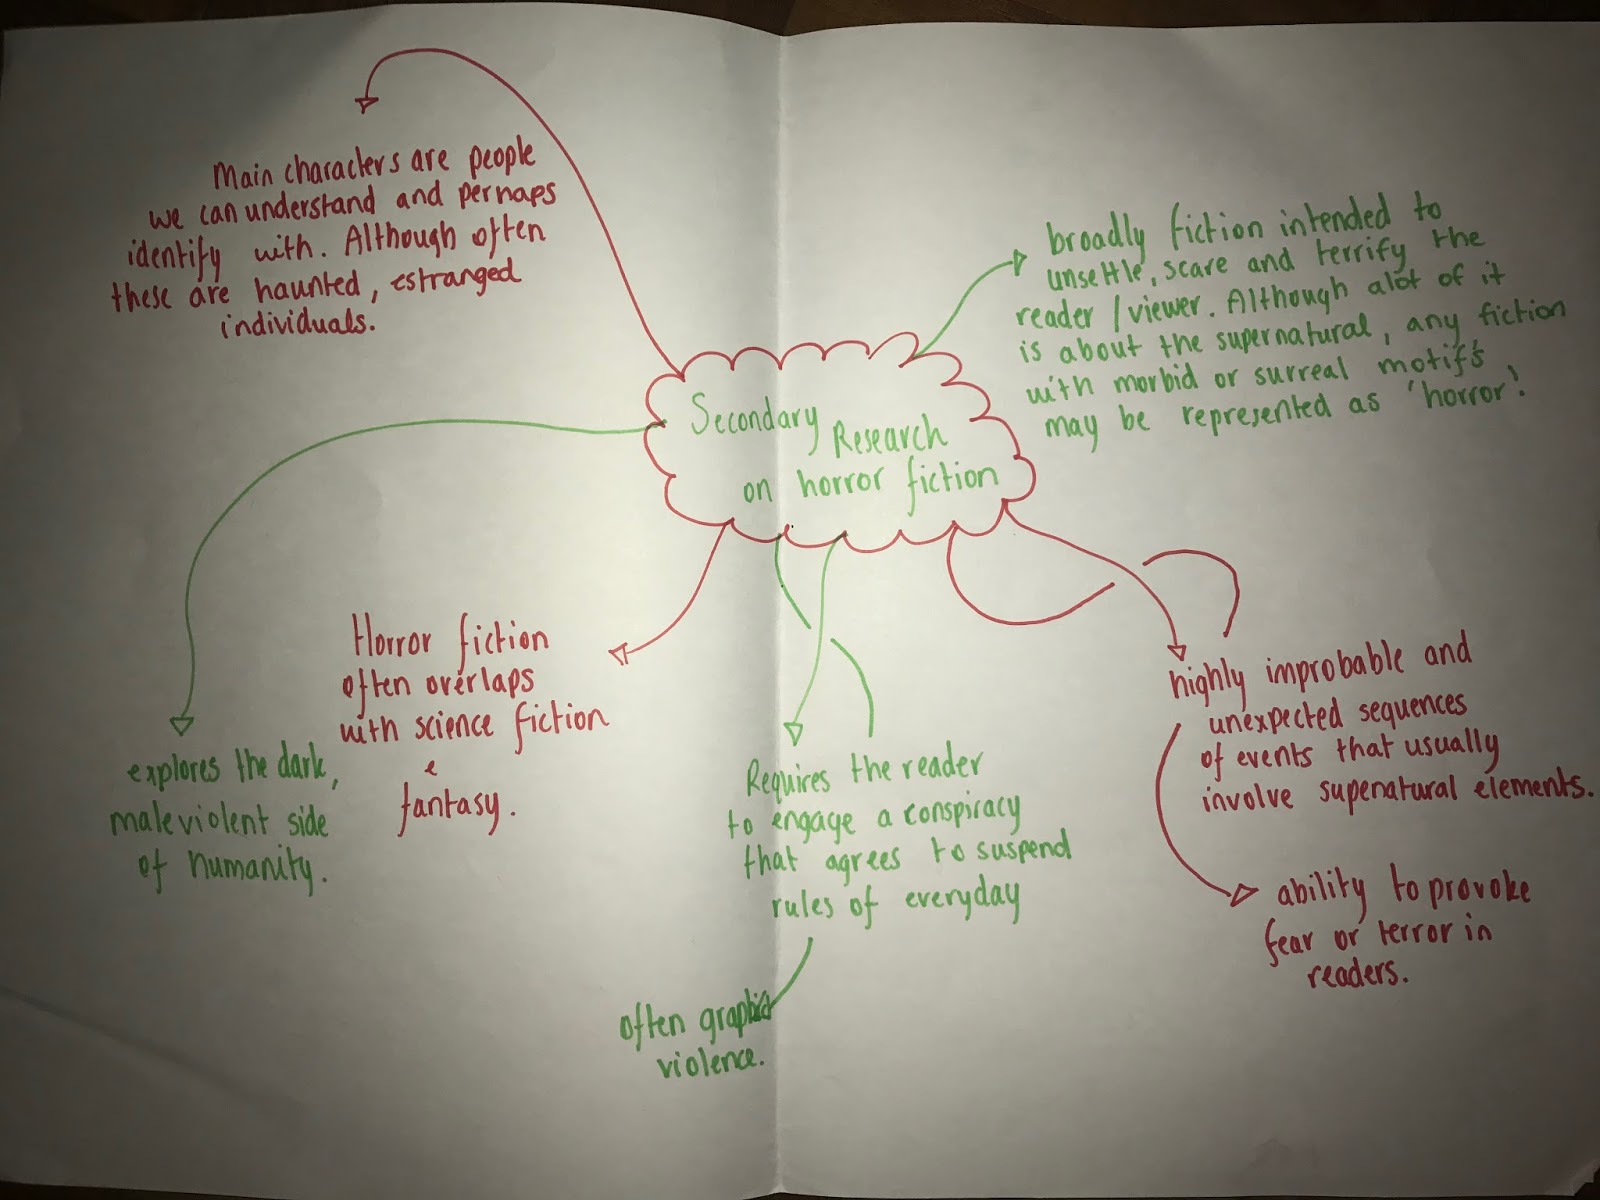 Main characters are people
we can understand and perhaps
identify with. Although often
these are haunted, estranged
individuals.
broadly fiction intended to
unsettle, scare and terrify the
reader / viewer. Although alot of it
is about the supernatural, any fiction
with morbid or surreal motifs
may be represented as 'horror'.
Secondary Research
on horror fiction
Horror fiction
often overlaps
with science fiction
e
fantasy.
explores the dark,
maleviolent side
of humanity.
Requires the reader
to engage a conspiracy
that agrees to suspend
rules of everyday
often graphic
violence.
highly improbable and
unexpected sequences
of events that usually
involve supenatural elements.
ability to provoke
fear or terror in
readers.